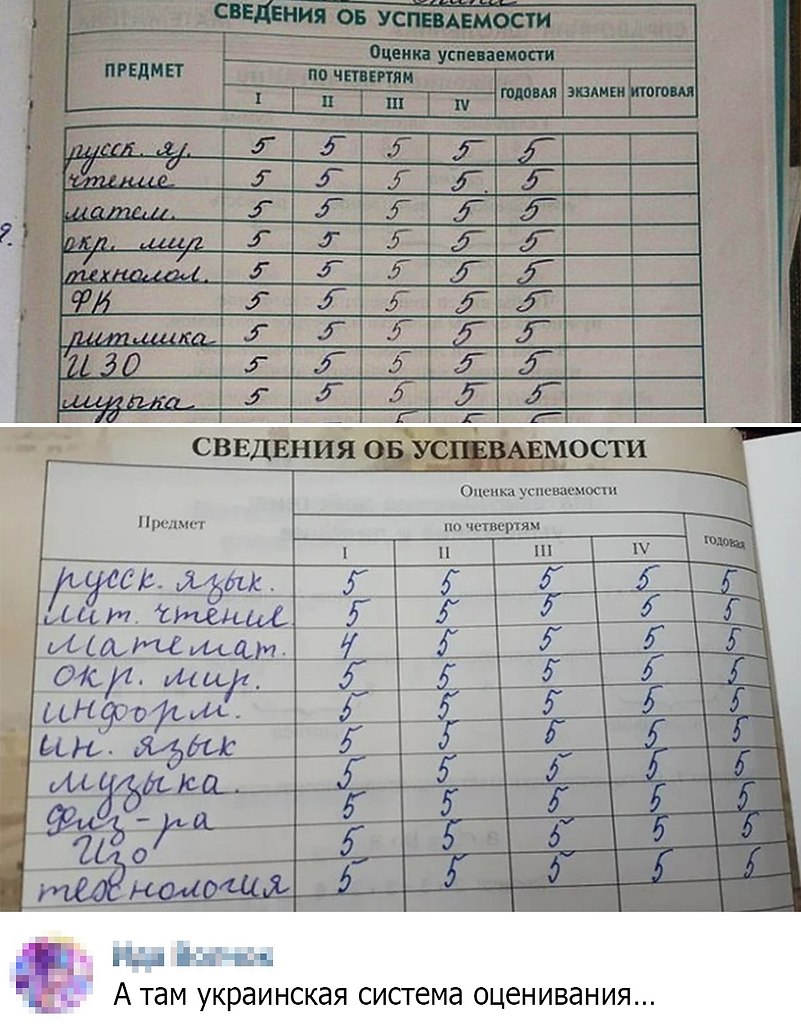 СВЕДЕНИЯ ОБ УСПЕВАЕМОСТИ
ПРЕДМЕТ
Оценка успеваемости
ПО ЧЕТВЕРТЯМ ГОДОВАЯ ЭКЗАМЕН ИТОГОВАЯ
I II III IV
русск. яз. 5 5 5 5 5
чтение 5 5 5 5 5
матем. 5 5 5 5 5
окр. мир 5 5 5 5 5
технолол. 5 5 5 5 5
ФК 5 5 5 5 5
ритмика 5 5 5 5 5
ИЗО 5 5 5 5 5
музыка 5 5 5 5 5
СВЕДЕНИЯ ОБ УСПЕВАЕМОСТИ
Предмет
Оценка успеваемости
по четвертям годовая
I II III IV
русск. язык. 5 5 5 5 5
лит. чтение 5 5 5 5 5
математ. 4 5 5 5 5
окр. мир. 5 5 5 5 5
информ. 5 5 5 5 5
ин. язык 5 5 5 5 5
музыка. 5 5 5 5 5
физ-ра 5 5 5 5 5
Изо 5 5 5 5 5
технология 5 5 5 5 5
А там украинская система оценивания...